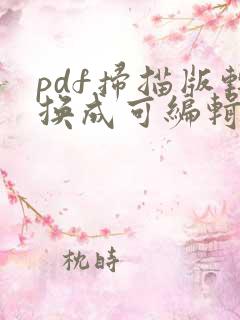 pdf掃描版轉
換成可編輯
枕時